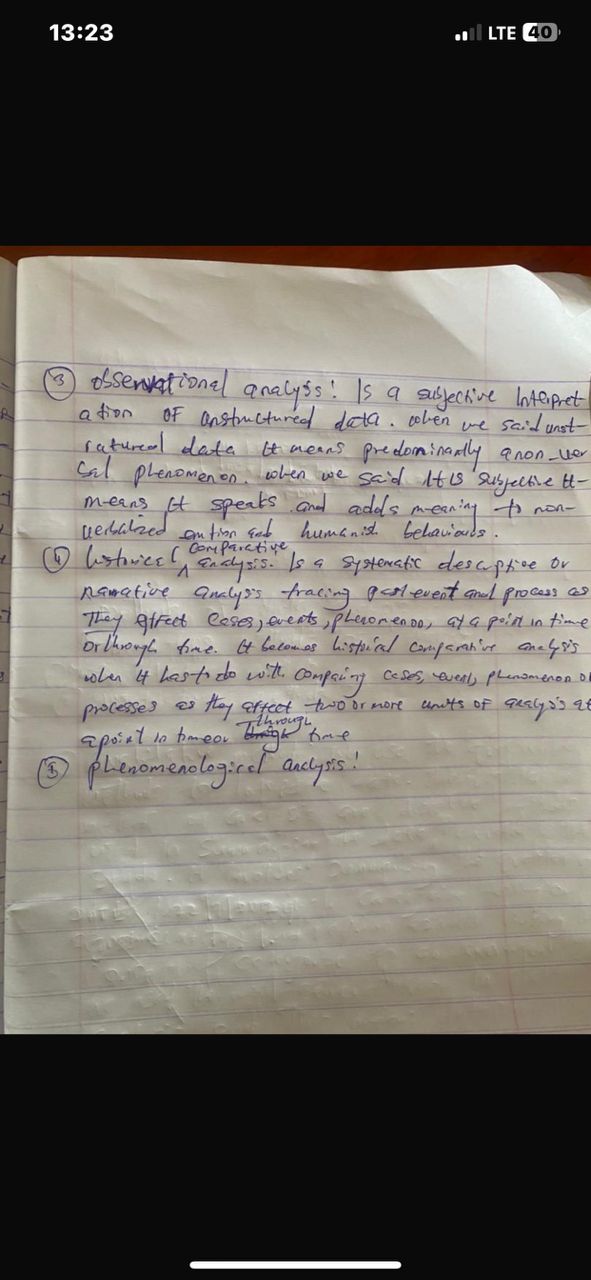 13:23
LTE 40
(3) observational analysis: Is a subjective Interpret-
ation OF unstructured data. when we said unst-
ratured data It means predominantly a non-ver
bal phenomenon. when we said It is subjective It-
means It speaks and adds meaning to non-
verbalized emotion and humanist behaviours.
(4) historical comparative
analysis. Is a systematic descriptive or
narrative analysis tracing past event and process as
They affect Cases, events, phenomenon, at a point in time
or through time. It becomes historical comparative analysis
when it has to do with comparing cases, event, phenomenon or
processes as they affect two or more units of analysis at
a point in time or through time
(5) phenomenological analysis!